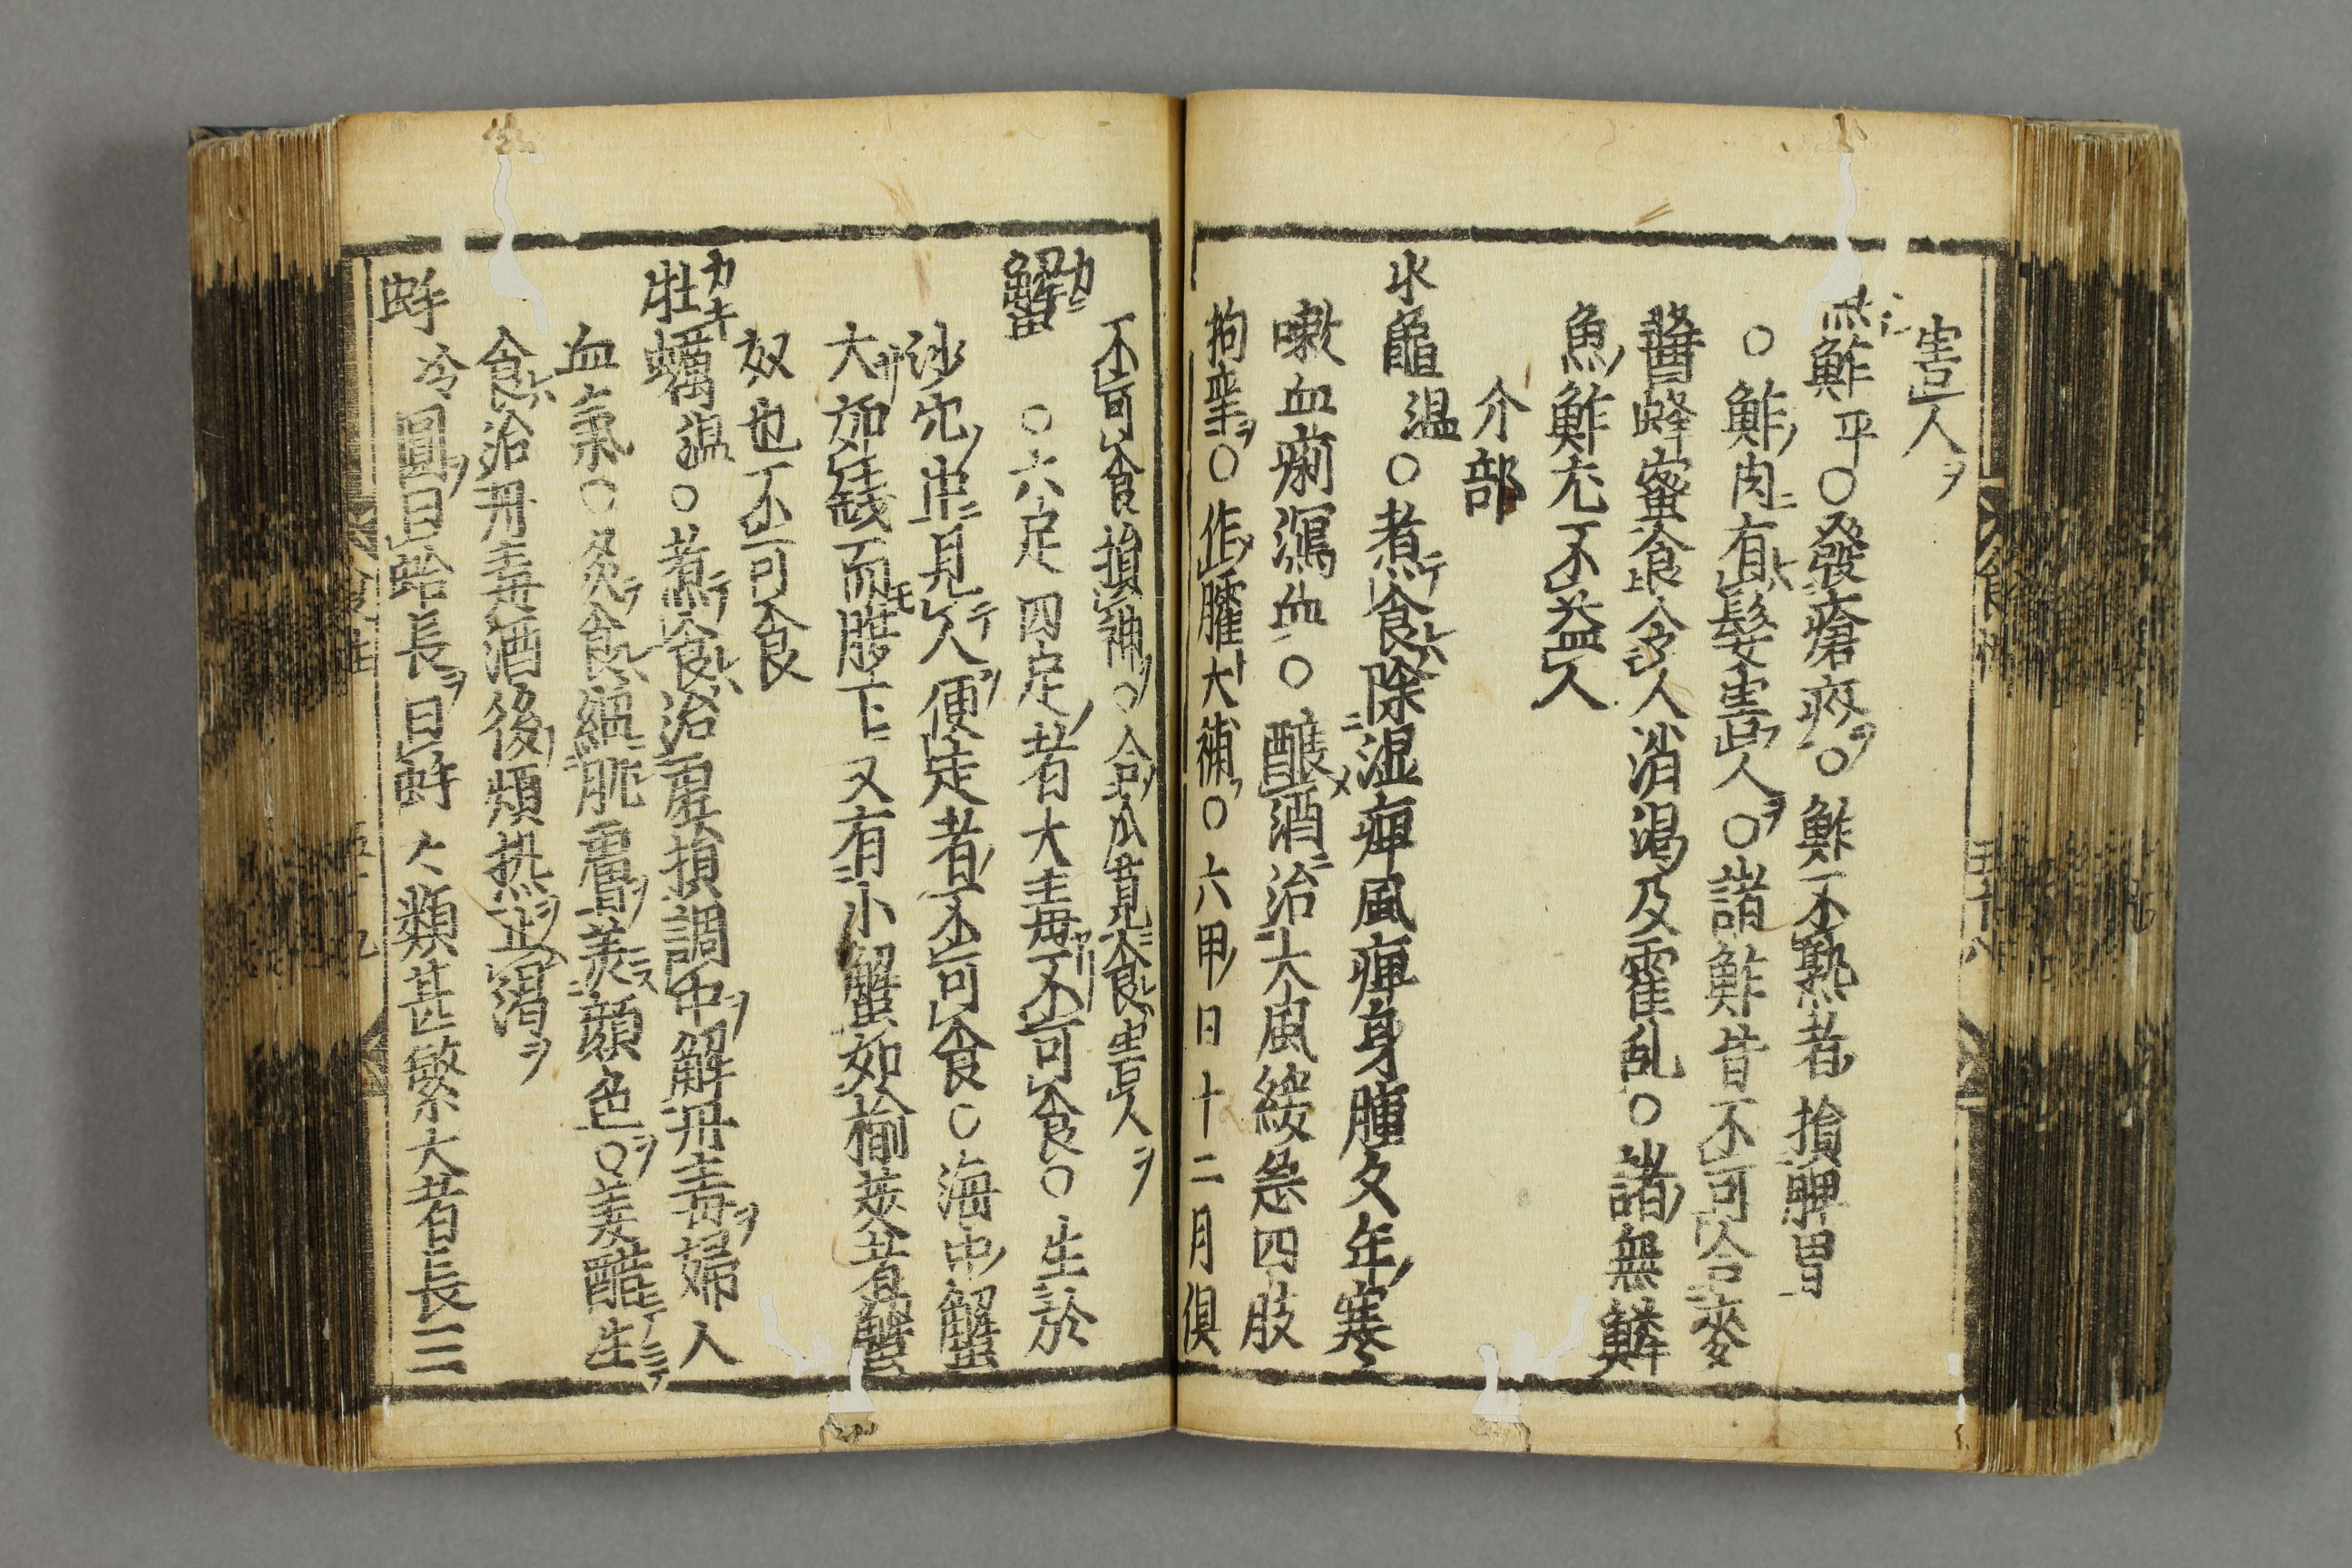 害人ヲ
魚鮓平○發瘡疥ヲ○鮓不熟者損脾胃
○鮓肉ニ有髮害人ヲ○諸鮓皆不可合麥
醬蜂蜜食令人消渴及霍乱○諸無鱗
魚鮓尤不益人
介部
水龜温○煮テ食ヘハ除湿痺風痺身腫久年寒
嗽血痢瀉血○釀酒治大風緩急四肢
拘攣ヲ○作臛大補○六甲日十二月俱
不可食損神○合瓜莧食害人ヲ
蟹カニ○六足四足者大毒不可食○生於
沙穴中見人便走者不可食○海中蟹
大如錢而腹下又有小蟹如榆莢者蟹
奴也不可食
牡蠣カキ温○煮テ食ヘハ治虛損調中ヲ解丹毒ヲ婦人
血氣○炙テ食ヘハ細肌膚美顔色ヲ○姜醋生
食ヘハ治丹毒酒後煩热止渴ヲ
蚌冷圓曰蛤長ヲ曰蚌々類甚繁大者長三